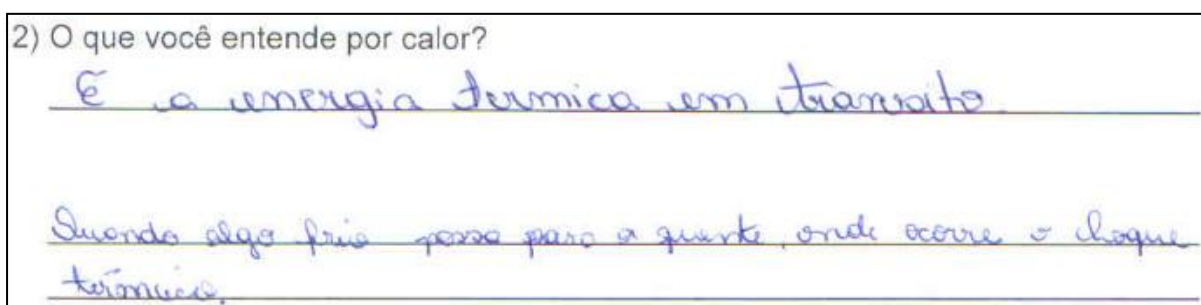 2) O que você entende por calor?
É a energia termica em transito.
Quando algo frio passa para o quente, onde ocorre o choque
térmico.